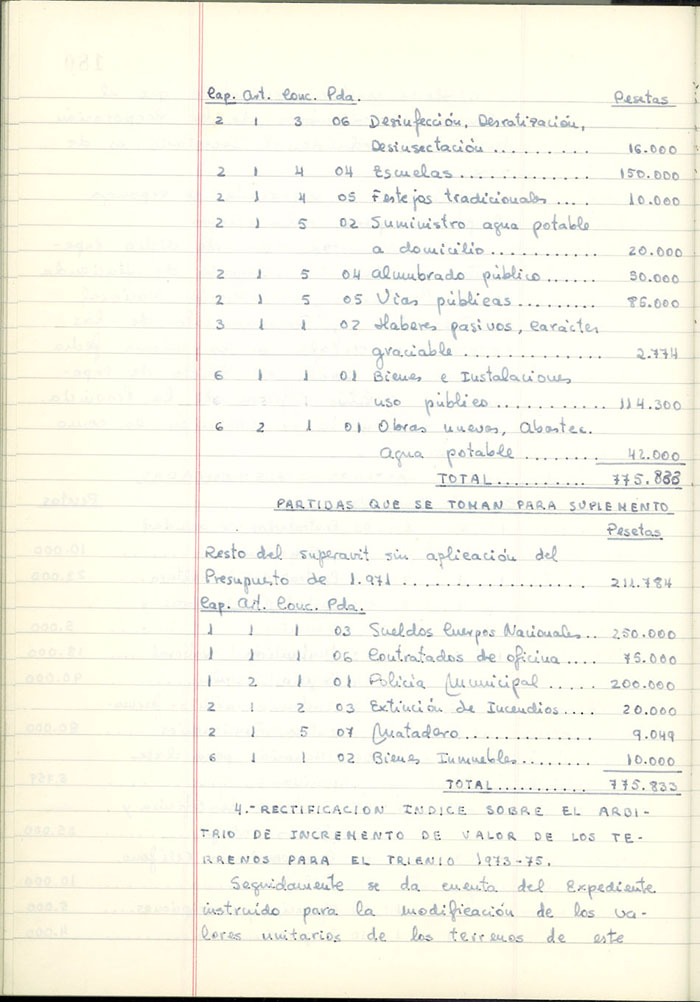 Cap. Art. Conc. Pda. Pesetas
2 1 3 06 Desinfección, Desratización,
Desinsectación .......... 16.000
2 1 4 04 Escuelas .............. 150.000
2 1 4 05 Festejos tradicionales .... 10.000
2 1 5 02 Suministro agua potable
a domicilio ........... 20.000
2 1 5 04 Alumbrado público ...... 50.000
2 1 5 05 Vias públicas ......... 85.000
3 1 1 02 Haberes pasivos, carácter
graciable .............. 2.774
6 1 1 01 Bienes e Instalaciones
uso público ........... 114.300
6 2 1 01 Obras nuevas, Abastec.
Agua potable ........ 42.000
TOTAL .......... 775.833
PARTIDAS QUE SE TOMAN PARA SUPLEMENTO
Pesetas
Resto del superavit sin aplicación del
Presupuesto de 1.971 .................. 211.784
Cap. Art. Conc. Pda.
1 1 1 03 Sueldos Cuerpos Nacionales .. 250.000
1 1 1 06 Contratados de oficina .... 75.000
1 2 1 01 Policía Municipal ....... 200.000
2 1 2 03 Extinción de Incendios .... 20.000
2 1 5 07 Matadero .............. 9.049
6 1 1 02 Bienes Inmuebles ........ 10.000
TOTAL ........... 775.833
4.- RECTIFICACION INDICE SOBRE EL ARBI-
TRIO DE INCREMENTO DE VALOR DE LOS TE-
RRENOS PARA EL TRIENIO 1973-75.
Seguidamente se da cuenta del Expediente
instruido para la modificación de los va-
lores unitarios de los terrenos de este